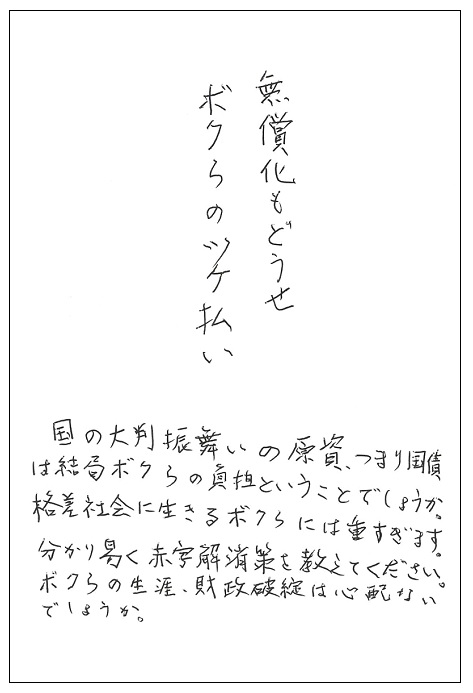 無償化もどうせ
ボクらのツケ払い
国の大判振舞いの原資、つまり国債
は結局ボクらの負担ということでしょうか。
格差社会に生きるボクらには重すぎます。
分かり易く赤字解消策を教えてください。
ボクらの生涯、財政破綻は心配ない
でしょうか。